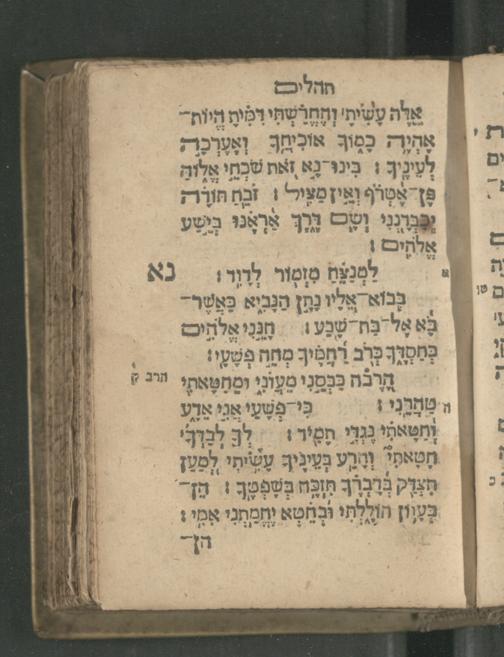 תהלים
אֵלֶּה עָשִׂיתָ וְהֶחֱרַשְׁתִּי דִּמִּיתָ הֱיוֹת־
אֶהְיֶה כָמוֹךָ אוֹכִיחֲךָ וְאֶעֶרְכָה
לְעֵינֶיךָ ׃ בִּינוּ־נָא זֹאת שֹׁכְחֵי אֱלוֹהַּ
פֶּן־אֶטְרֹף וְאֵין מַצִּיל ׃ זֹבֵחַ תּוֹדָה
יְכַבְּדָנְנִי וְשָׂם דֶּרֶךְ אַרְאֶנּוּ בְּיֵשַׁע
אֱלֹהִים ׃
נא לַמְנַצֵּחַ מִזְמוֹר לְדָוִד ׃
בְּבוֹא־אֵלָיו נָתָן הַנָּבִיא כַּאֲשֶׁר־
בָּא אֶל־בַּת־שָׁבַע ׃ חָנֵּנִי אֱלֹהִים
כְּחַסְדֶּךָ כְּרֹב רַחֲמֶיךָ מְחֵה פְשָׁעָי ׃
הַרְבֵּה כַּבְּסֵנִי מֵעֲוֹנִי וּמֵחַטָּאתִי
הרב ק
טַהֲרֵנִי ׃ כִּי־פְשָׁעַי אֲנִי אֵדָע
וְחַטָּאתִי נֶגְדִּי תָמִיד ׃ לְךָ לְבַדְּךָ
חָטָאתִי וְהָרַע בְּעֵינֶיךָ עָשִׂיתִי לְמַעַן
תִּצְדַּק בְּדָבְרֶךָ תִּזְכֶּה בְשָׁפְטֶךָ ׃ הֵן־
בְּעָווֹן חוֹלָלְתִּי וּבְחֵטְא יֶחֱמַתְנִי אִמִּי ׃
הן־